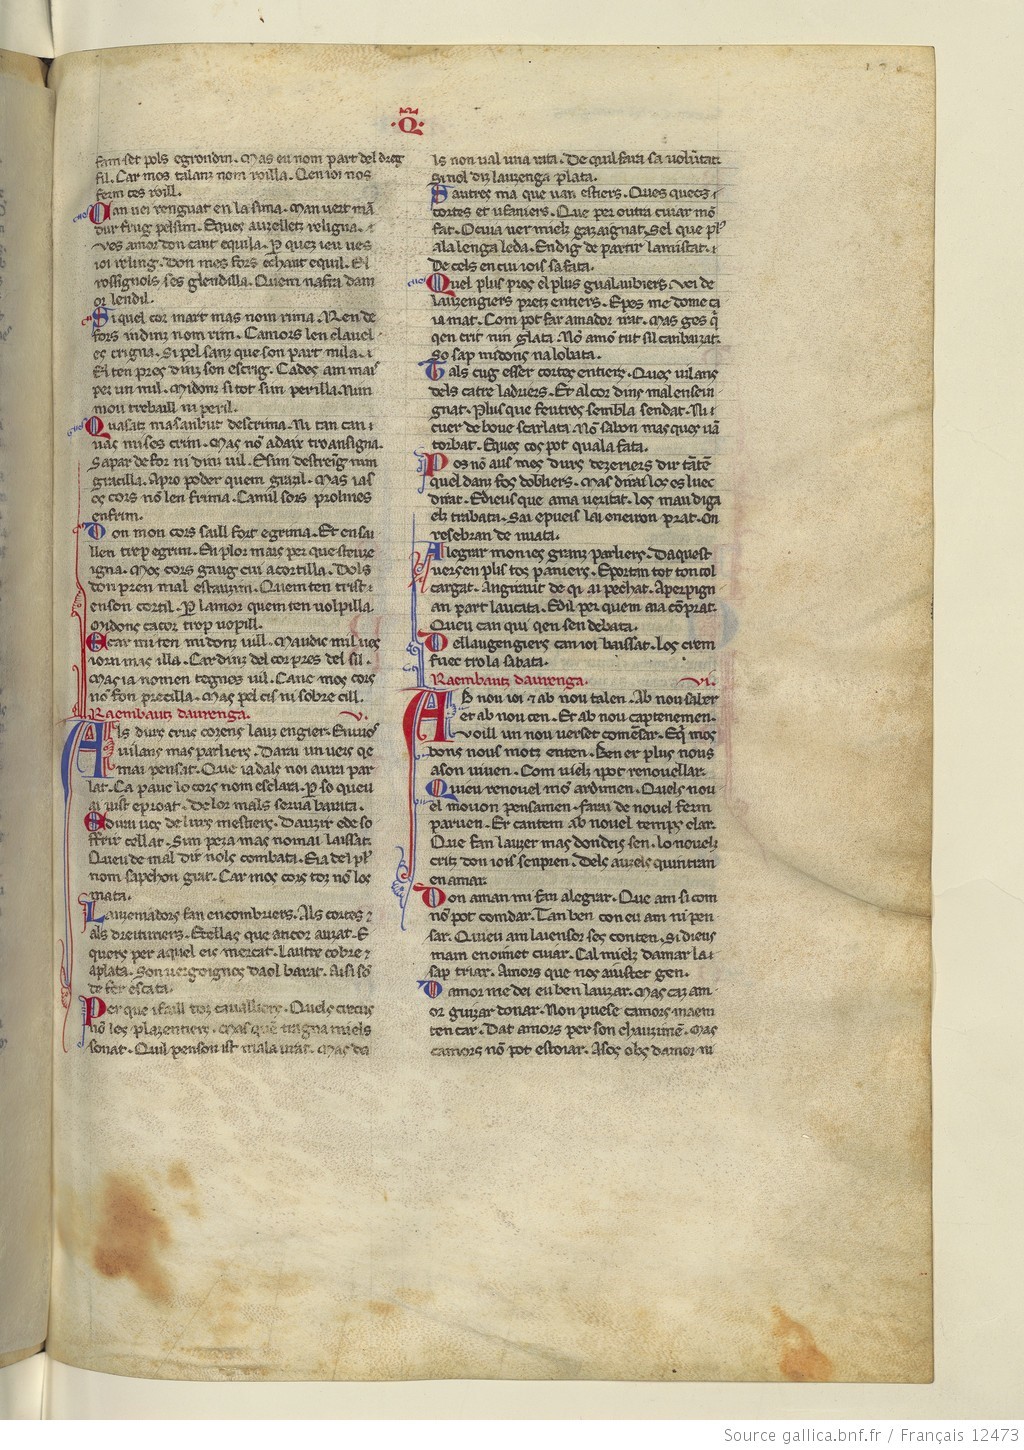 ·Q·
fam set pols e grondin. Mas eu nom part del dreg
fil. Car mos talanz nom roilla. Q en ioi nos
ferm ses roill.
Qan vei renguat en la sima. Man vert ma
dur frug pel sim. E qes auzelletz religna.
ves amor don cant e quila. P quez ieu ues
ioi religni. Don mes fors e chant equil. El
rossignols ses glendilla. Quem nafra dam
or lendil.
Si quel cor mart mas nom rima. Ren de
fors in dinz nom rim. Camors len clauel
es crigna. Si pel sanz que son part mila.
El ten pres dinz son escrig. Cades am mais
per un mil. Midonz si tot sim perilla. Nim
mou trebaill ni peril.
Quasatz mas an but descrima. Ni tan can
vas mi ses crim. Mas nõ adaix tro ansigna.
Sapar defor ni dinz uil. E sim destreig nim
grazilla. Apro poder quem grazil. Mas ias
es cors nõ len frima. Camil sors pro limes
enfrim.
Don mon cors saill fort e grima. Et en sai
llen trep e grim. En plor mais per que s treize
igna. Mos cors gaug cui acortilla. Dols
don pren mal estauzim. Quem ten trist
en son cortil. P lamor quem ten uolpilla.
Midons cacor trop uopill.
E car mi ten midonz uill. Maudic mil ues
iorn mas illa. Car dinz del cor pres del fil.
Mas ia nomen tegnes uil. Cane mos cors
nõ fon precilla. Mas pel cis ni sobre cill.
Raembautz daurenga. v.
Als durs crus cozens lauzengier. Enuios
uilans mas parliers. Darai un uers qe
mai pensat. Que ia dals noi aura par
lat. Ca pauc lo cors nom esclata. P so queu
ai uist e proat. De lor mals serua barata.
E dirai ues de lurs mestiers. Dauzir e de so
ffrir cellar. Sim peza mas nomai laissat.
Queu de mal dir nols combata. E ia del pl'
nom sapchon grat. Car mos cors toz nõ los
mata.
Lauzeniadors fan encombriers. Als cortes
als dreituriers. Et ellas que an cor auzat. E
quers per aquel eis mercat. Lautre cobre
aplata. Son uergoignos daol barat. Aisi sõ
de fer escata.
Per que i faill toz cauallliers. Quels cre ius
nõ les plazentiers. Mas que tragna miels
sonat. Quil penson ist mala uras. Mas da
ls non ual una rata. De quil fara sa uolũtat.
si nol diz lauzenga plata.
Sautres ma que uan estiers. Ques quecs
cortes et ufaniers. Que per outra cuiar mõ
fat. O cuia uer mielz gazaignat. Sel que pl'
a la lenga leda. En dig de partir lamistat.
De cels en cui iois safata.
Quel plus pros el plus gualaubiers. Vei de
lauzengiers pretz entiers. E pes me dome ca
ia mat. Com pot far amador irat. Mas ges q
qen crit nim glata. Nõ amo tut sil can baizat.
So sap midons na lobata.
Tals cug esser cortes entiers. Ques uilans
dels catre ladriers. Et al cor dinz mal ensein
gnat. Plus que feutres sembla sendat. Ni
cuer de boue scarlata. Nõ sabon mas ques uã
torbat. E ques cos pot quala fata.
Pos nõ aus mos durs dezeriers dir tãte
quel dam fos dobliers. Mas dirai los es luec
dirat. E dieus que ama ueritat. Los maudiga
els trabata. Sai e pueis lai en eiron prat. On
resebran de mata.
Alegrar mon ies granz parliers. Daquest
vers en plis tos paniers. E portan tot ton col
cargat. An giraut de qi ai pechat. A perpign
an part laucata. E dil per quem aia cõprat.
Queu can qui qen sen debata.
Dels laugengiers can ioi baissat. Los crem
fuec tro la sabata.
Raembautz daurenga. vi.
Ab nou ioi & ab nou talen. Ab nou saber
et ab nou cen. Et ab nou captenemen.
Voill un nou uerset comẽsar. E q mos
bons nous motz enten. Ben er plus nous
a son uiuen. Com uielz ipot renouellar.
Quieu renouel mõ ardimen. Quels nou
el mouon pensamen. Farai de nouel ferm
paruen. Er cantem ab nouel temps clar.
Que fan lauzer mas dondeis sen. Lo nouels
critz don iois senpren. Dels auzels quintran
en amar.
Don aman mi fan alegrar. Que am si com
nõ pot comdar. Tan ben con eu am ni pen
sar. Quieu am la iensor ses conten. Si dieus
mam en oimet cuiar. Cal mielz damar lai
sap triar. Amors que nos aiustet gen.
Damor me dei eu ben lauzar. Mas caz am
or guizardonar. Non puese camors maem
ten car. Dat amors per son chauzimẽ. Mas
camors nõ pot estoiar. A sos obs damor ni
Source gallica.bnf.fr / Français 12473